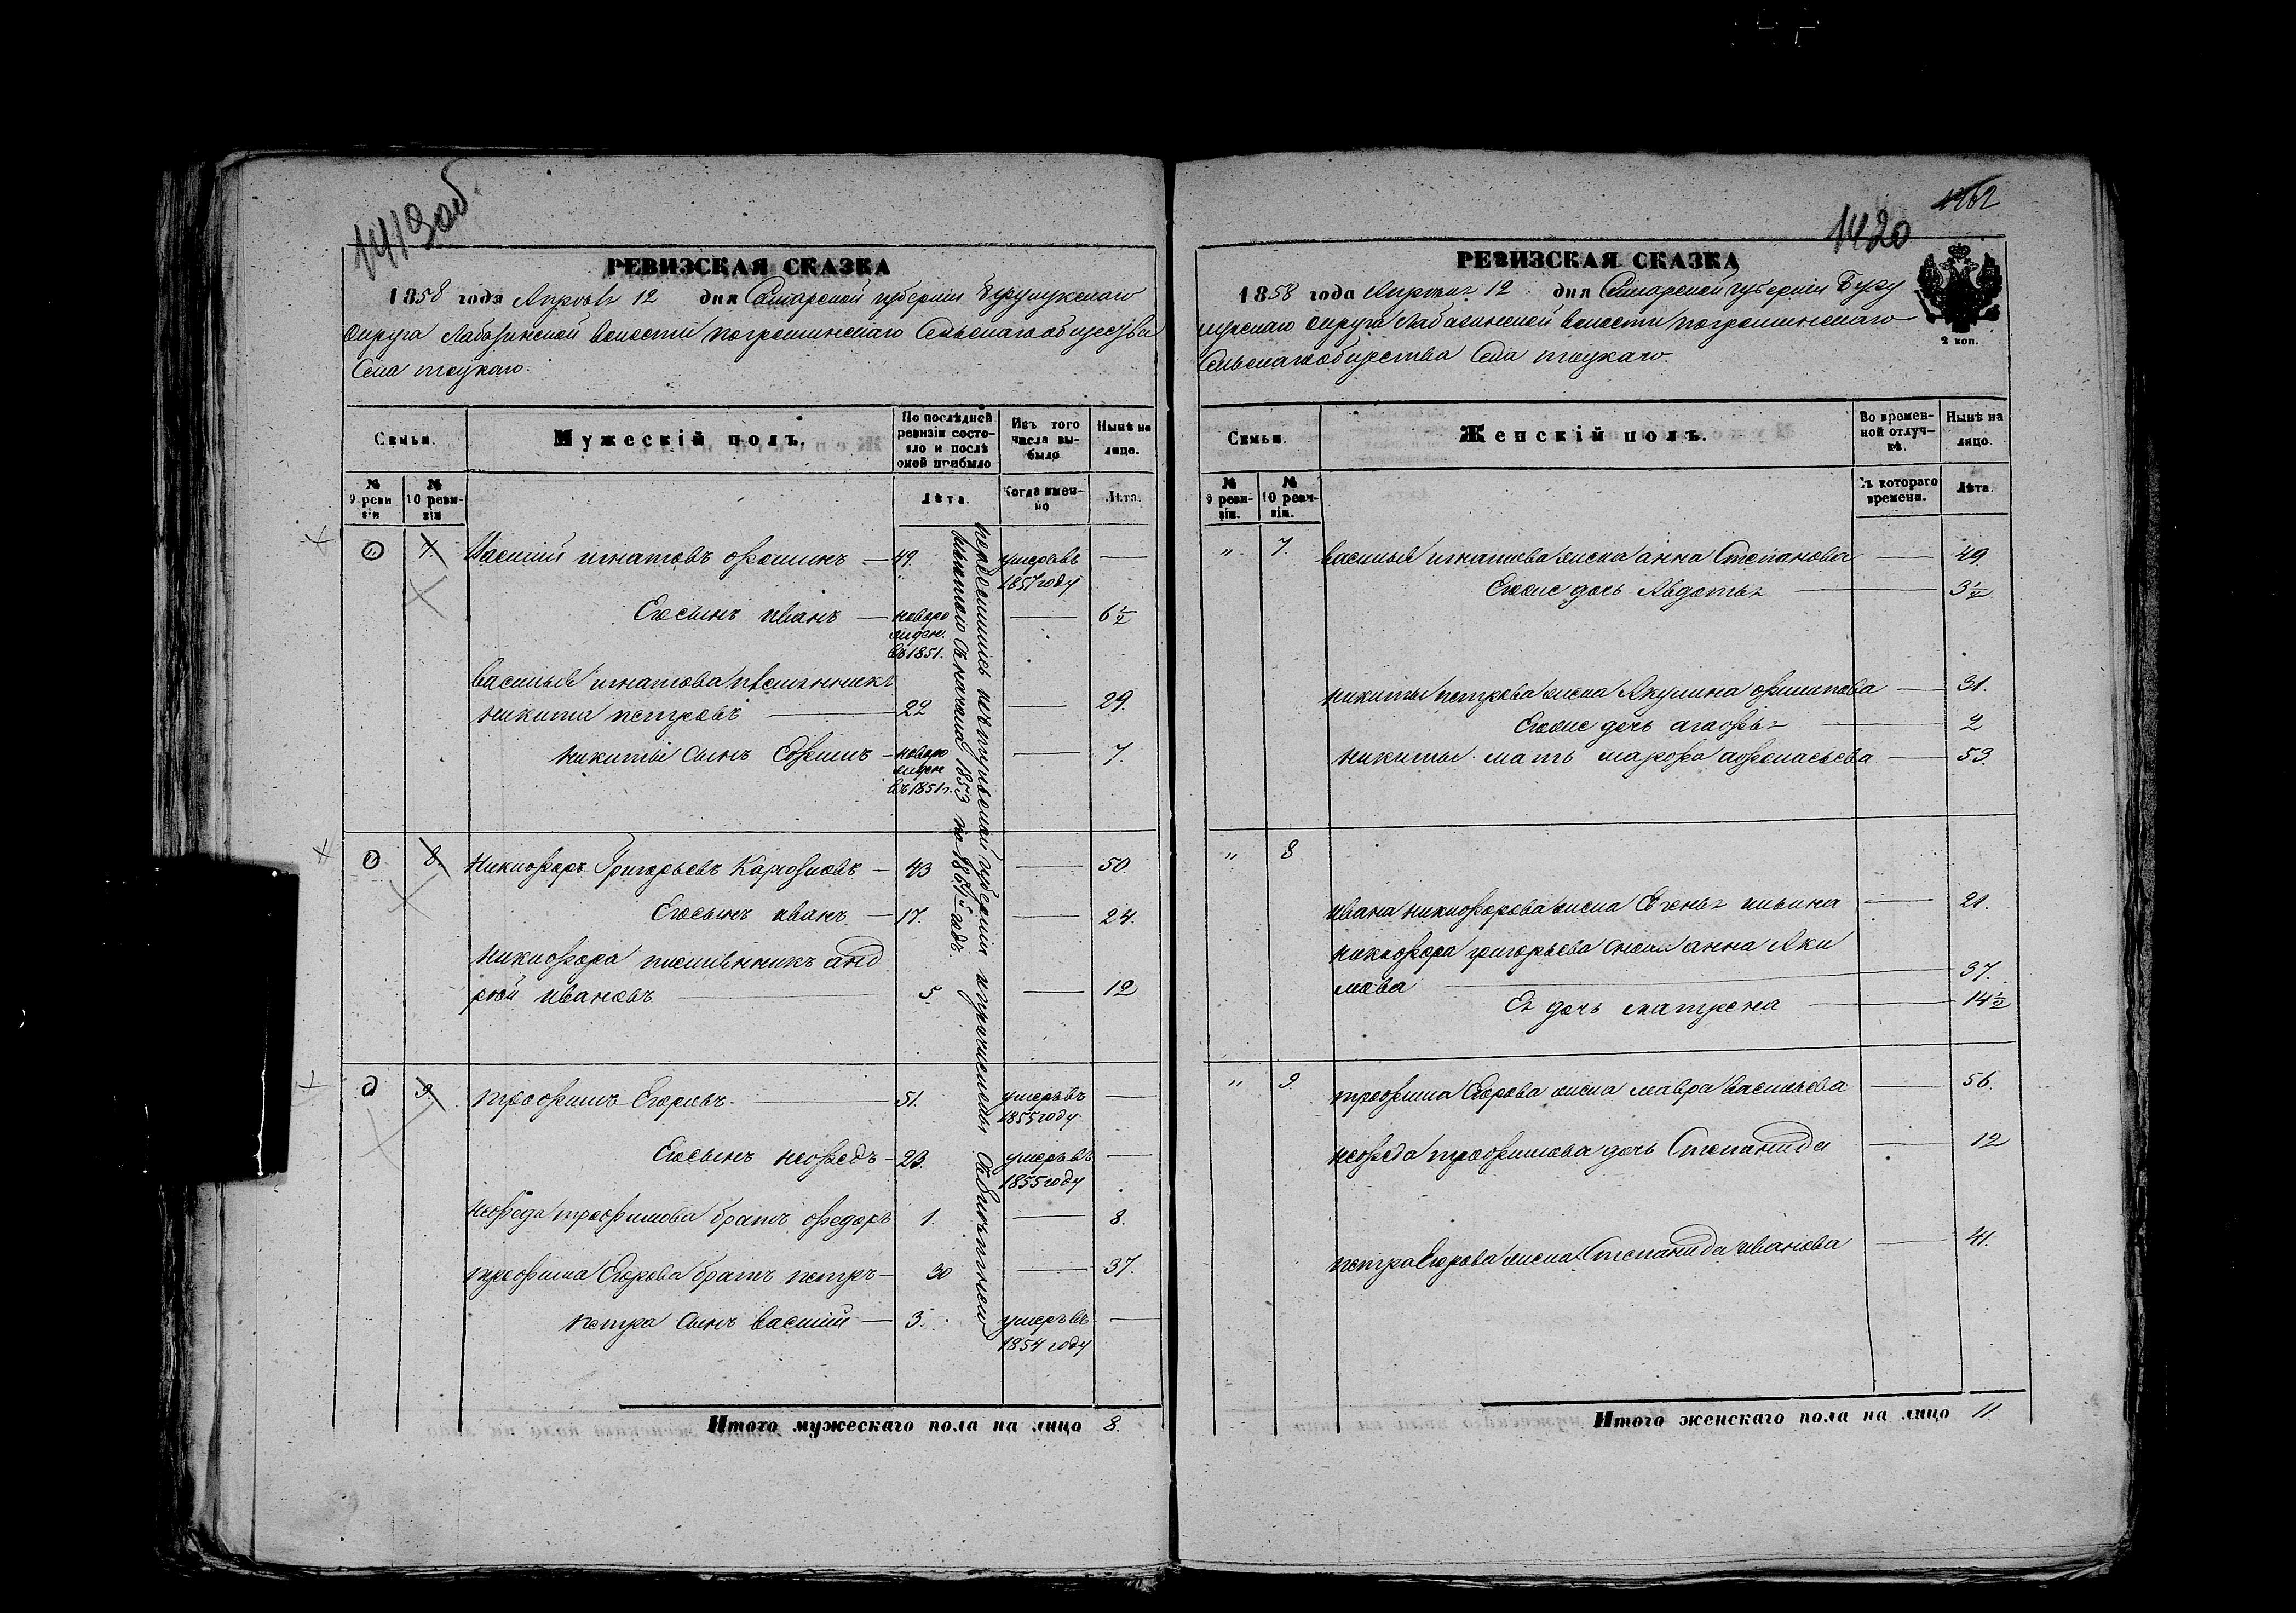 1419об
РЕВИЗСКАЯ СКАЗКА
1858 года Апреля 12 дня Самарской губернии Бузулукскаго
округа Лабазинской волости погроминскаго Сельскаго общества
Села тоцкаго.
Семьи.
Мужескій полъ.
По послѣдней ревизіи состояло и послѣ оной прибыло
Изъ того числа выбыло
Нынѣ на лицо.
№ 9 ревизіи
№ 10 ревизіи
Лѣта.
Когда именно
Лѣта.
7. Василій игнатовъ фоминъ 49. умеръ въ 1857 году
Его сынъ иванъ новорожден. въ 1851. 6½
Василья игнатова племянникъ
никита петровъ 22 29.
никиты сынъ Ефимъ новорожден въ 1851 г. 7.
переселились изъ тульской губернии и причислены
1853 по 1861й годъ.
8. Никифоръ Григорьевъ 43 50.
Его сынъ иванъ 17. 24.
Никифора племянникъ анд
рей ивановъ 5. 12
9. трофимъ Егоровъ 51. умеръ въ 1855 году
Его сынъ нефедъ 23. умеръ въ 1855 году
Нефеда трофимова братъ федоръ 1. 8.
трофима Егорова братъ петръ 30 37.
петра сынъ василий 3. умеръ въ 1854 году
Итого мужескаго пола на лицо 8.
1420
РЕВИЗСКАЯ СКАЗКА
1858 года Апреля 12 дня Самарской губернии Бузу
лукскаго округа Лабазинской волости погроминскаго
Сельскаго общества Села тоцкаго.
2 коп.
Семьи.
Женскій полъ.
Во временной отлучкѣ.
Нынѣ на лицо.
№ 9 ревизіи.
№ 10 ревизіи.
Съ котораго времени.
Лѣта.
" 7. василья игнатова жена анна Степанова 49.
Его же дочь Авдотья 3½
никиты петрова жена Акулина филипова 31.
Его же дочь агафья 2
никиты мать марфа афонасьева 53.
" 8
ивана никифорова жена Евгенья ильина 21.
никифора григорьева сноха анна Аки
мова 37.
Ея дочь матрена 14½
" 9. трофима Егорова жена мавра васильева 56.
нефеда трофимова дочь Степанида 12
петра Егорова жена Степанида иванова 41.
Итого женскаго пола на лицо 11.